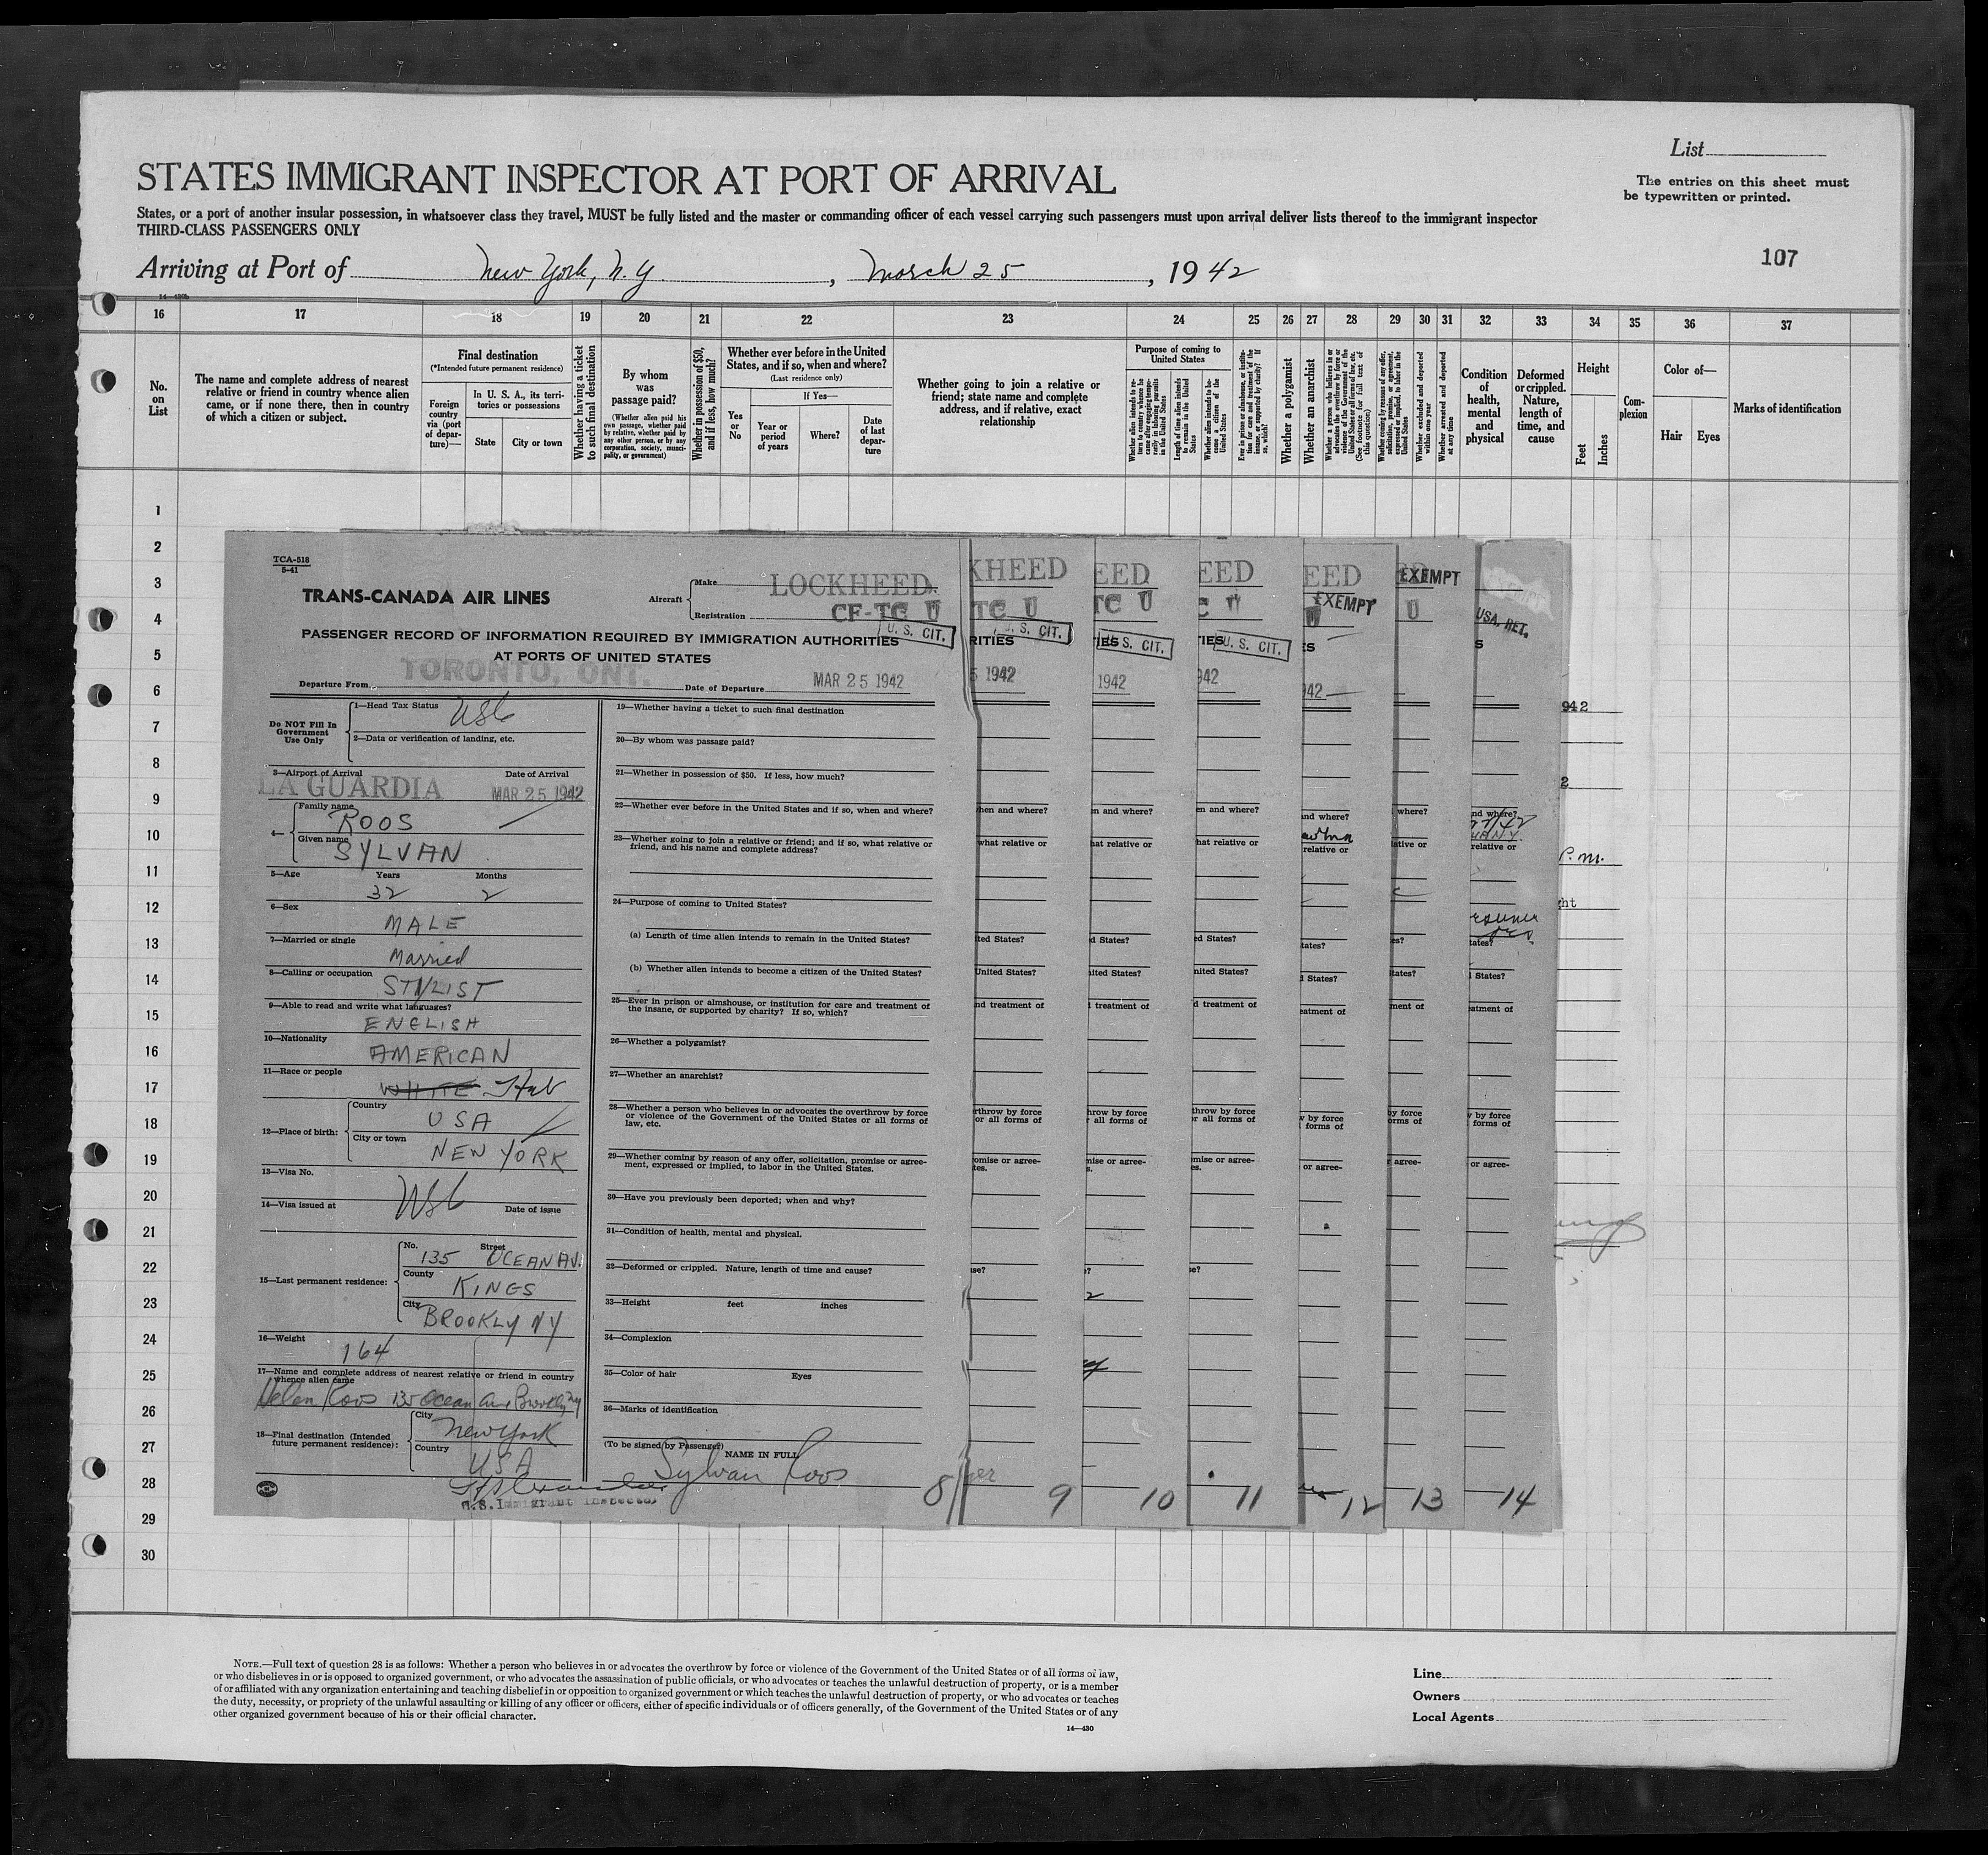 List
The entries on this sheet must
be typewritten or printed.
STATES IMMIGRANT INSPECTOR AT PORT OF ARRIVAL
States, or a port of another insular possession, in whatsoever class they travel, MUST be fully listed and the master or commanding officer of each vessel carrying such passengers must upon arrival deliver lists thereof to the immigrant inspector
THIRD-CLASS PASSENGERS ONLY
107
Arriving at Port of New York, N.Y. , March 25 , 1942
14-430b
16 17 18 19 20 21 22 23 24 25 26 27 28 29 30 31 32 33 34 35 36 37
No. on List
The name and complete address of nearest relative or friend in country whence alien came, or if none there, then in country of which a citizen or subject.
Final destination
(*Intended future permanent residence)
Foreign country via (port of departure)—
In U. S. A., its territories or possessions
State
City or town
Whether having a ticket to such final destination
By whom was passage paid?
(Whether alien paid his own passage, whether paid by relative, whether paid by any other person, or by any corporation, society, municipality, or government)
Whether in possession of $50, and if less, how much?
Whether ever before in the United States, and if so, when and where?
(Last residence only)
If Yes—
Yes or No
Year or period of years
Where?
Date of last departure
Whether going to join a relative or friend; state name and complete address, and if relative, exact relationship
Purpose of coming to United States
Whether alien intends to return to country whence he came after engaging temporarily in laboring pursuits in the United States
Length of time alien intends to remain in the United States
Whether alien intends to become a citizen of the United States
Ever in prison or almshouse, or institution for care and treatment of the insane, or supported by charity? If so, which?
Whether a polygamist
Whether an anarchist
Whether a person who believes in or advocates the overthrow by force or violence of the Government of the United States or all forms of law, etc. (See footnote for full text of this question)
Whether coming by reasons of any offer, solicitation, promise, or agreement, expressed or implied, to labor in the United States
Whether excluded and deported within one year
Whether arrested and deported at any time
Condition of health, mental and physical
Deformed or crippled. Nature, length of time, and cause
Height
Feet
Inches
Complexion
Color of—
Hair
Eyes
Marks of identification
1
2
3
4
5
6
7
8
9
10
11
12
13
14
15
16
17
18
19
20
21
22
23
24
25
26
27
28
29
30
TCA-518
5-41
TRANS-CANADA AIR LINES
Aircraft
Make LOCKHEED
Registration CF-TC U
U. S. CIT.
PASSENGER RECORD OF INFORMATION REQUIRED BY IMMIGRATION AUTHORITIES
AT PORTS OF UNITED STATES
Departure From TORONTO, ONT. Date of Departure MAR 25 1942
Do NOT Fill In
Government
Use Only
1—Head Tax Status USC
2—Data or verification of landing, etc.
3—Airport of Arrival Date of Arrival
LA GUARDIA MAR 25 1942
4—
Family name
ROOS
Given name
SYLVAN
5—Age Years Months
32 2
6—Sex
MALE
7—Married or single
Married
8—Calling or occupation
STYLIST
9—Able to read and write what languages?
ENGLISH
10—Nationality
AMERICAN
11—Race or people
WHITE Heb
12—Place of birth:
Country
USA
City or town
NEW YORK
13—Visa No.
USC
14—Visa issued at Date of issue
15—Last permanent residence:
No. Street
135 OCEAN AV.
County
KINGS
City
BROOKLY NY
16—Weight
164
17—Name and complete address of nearest relative or friend in country
whence alien came
Helen Roos 135 Ocean Ave Brooklyn NY
18—Final destination (Intended
future permanent residence):
City
New York
Country
USA
U.S. Immigrant Inspector
19—Whether having a ticket to such final destination
20—By whom was passage paid?
21—Whether in possession of $50. If less, how much?
22—Whether ever before in the United States and if so, when and where?
23—Whether going to join a relative or friend; and if so, what relative or
friend, and his name and complete address?
24—Purpose of coming to United States?
(a) Length of time alien intends to remain in the United States?
(b) Whether alien intends to become a citizen of the United States?
25—Ever in prison or almshouse, or institution for care and treatment of
the insane, or supported by charity? If so, which?
26—Whether a polygamist?
27—Whether an anarchist?
28—Whether a person who believes in or advocates the overthrow by force
or violence of the Government of the United States or all forms of
law, etc.
29—Whether coming by reason of any offer, solicitation, promise or agree-
ment, expressed or implied, to labor in the United States.
30—Have you previously been deported; when and why?
31—Condition of health, mental and physical.
32—Deformed or crippled. Nature, length of time and cause?
33—Height feet inches
34—Complexion
35—Color of hair Eyes
36—Marks of identification
(To be signed by Passenger)
NAME IN FULL
Sylvan Roos
8 9 10 11 12 13 14
KHEED EED EED EED EXEMPT
TC U TC U C U EXEMPT U USA, RET.
U. S. CIT. S. CIT. U. S. CIT.
1942 1942 942 942
NOTE.—Full text of question 28 is as follows: Whether a person who believes in or advocates the overthrow by force or violence of the Government of the United States or of all forms of law,
or who disbelieves in or is opposed to organized government, or who advocates the assassination of public officials, or who advocates or teaches the unlawful destruction of property, or is a member
of or affiliated with any organization entertaining and teaching disbelief in or opposition to organized government or which teaches the unlawful destruction of property, or who advocates or teaches
the duty, necessity, or propriety of the unlawful assaulting or killing of any officer or officers, either of specific individuals or of officers generally, of the Government of the United States or of any
other organized government because of his or their official character.
14—430
Line
Owners
Local Agents